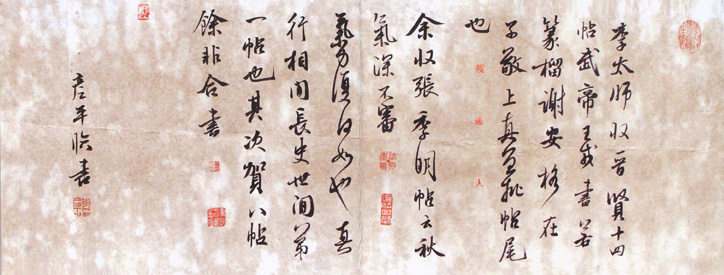 李太師收晉賢十四
帖武帝王戎書若
篆籀謝安格在
子敬上真宜批帖尾
也
余收張季明帖云秋
氣深不審
氣力復何如也真
行相間長史世間第
一帖也其次賀八帖
餘非合書
臨書